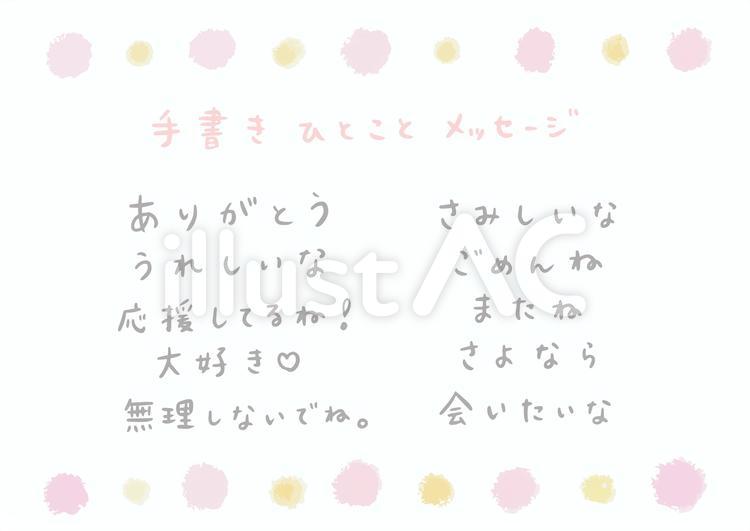 手書き ひとこと メッセージ
ありがとう
うれしいな
応援してるね!
大好き♡
無理しないでね。
さみしいな
ごめんね
またね
さよなら
会いたいな
illust AC